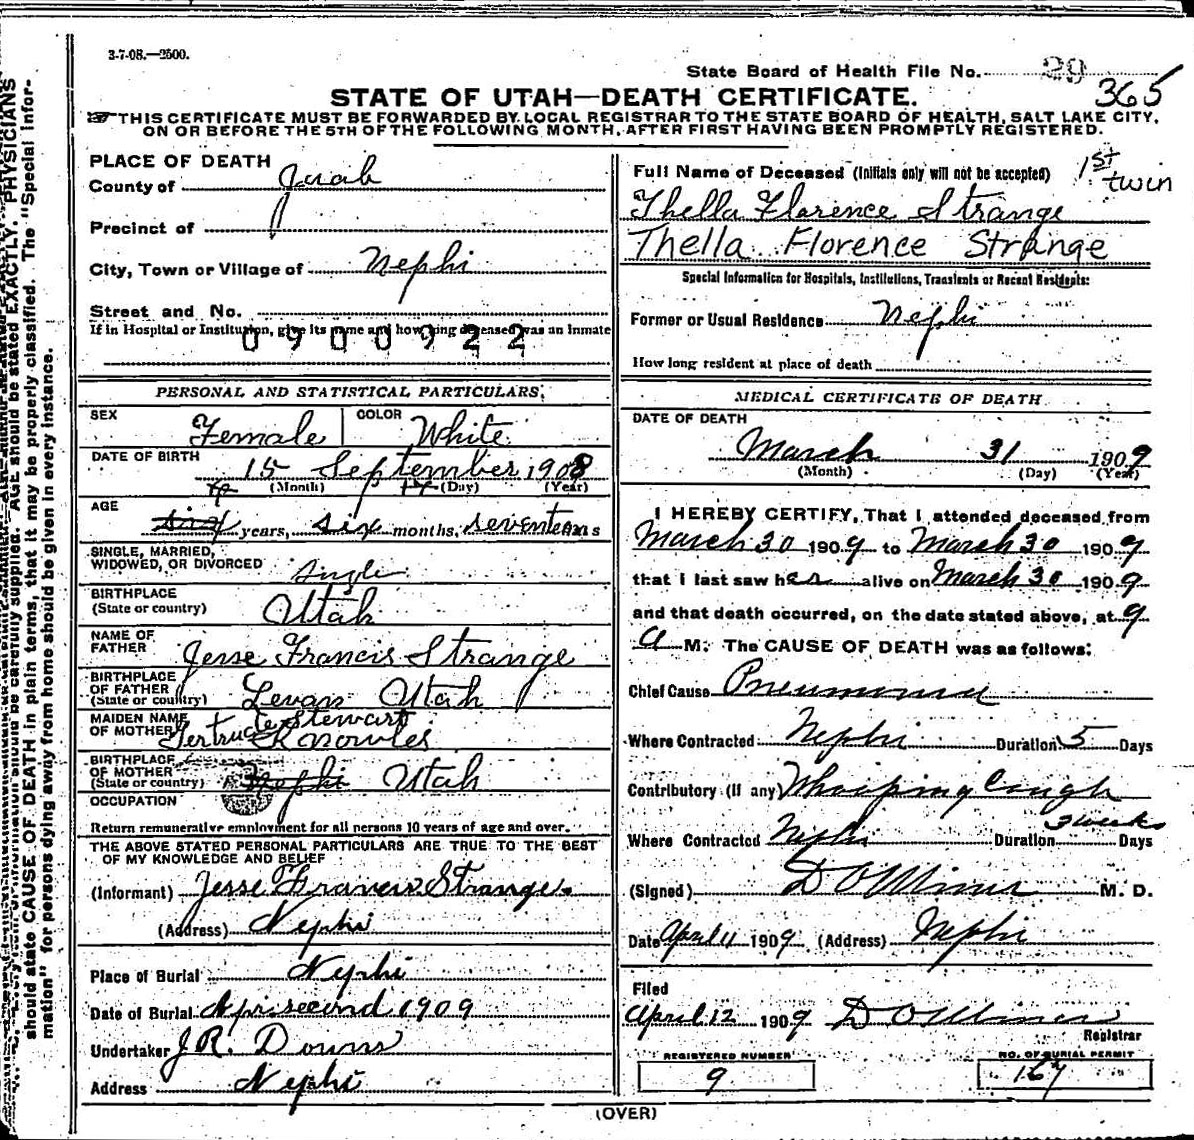 3-7-08.—2500.
State Board of Health File No. 29
365
STATE OF UTAH—DEATH CERTIFICATE.
THIS CERTIFICATE MUST BE FORWARDED BY LOCAL REGISTRAR TO THE STATE BOARD OF HEALTH, SALT LAKE CITY,
ON OR BEFORE THE 5TH OF THE FOLLOWING MONTH, AFTER FIRST HAVING BEEN PROMPTLY REGISTERED.
PLACE OF DEATH
County of Juab
Precinct of
City, Town or Village of Nephi
Street and No.
If in Hospital or Institution, give its name and how long deceased was an inmate
0900922
PERSONAL AND STATISTICAL PARTICULARS.
SEX Female COLOR White
DATE OF BIRTH
15 September 1908
(Month) 14 (Day) (Year)
AGE
six years, six months, seventeen s
SINGLE, MARRIED,
WIDOWED, OR DIVORCED single
BIRTHPLACE
(State or country) Utah
NAME OF
FATHER Jesse Francis Strange
BIRTHPLACE
OF FATHER
(State or country) Levan Utah
MAIDEN NAME Stewart
OF MOTHER Gertrude Knowles
BIRTHPLACE
OF MOTHER
(State or country) Nephi Utah
OCCUPATION
Return remunerative employment for all persons 10 years of age and over.
THE ABOVE STATED PERSONAL PARTICULARS ARE TRUE TO THE BEST
OF MY KNOWLEDGE AND BELIEF
(Informant) Jesse Francis Strange.
(Address) Nephi
Place of Burial Nephi
Date of Burial Apr second 1909
Undertaker J R. Downs
Address Nephi
Full Name of Deceased (Initials only will not be accepted) 1st twin
Thella Florence Strange
Thella Florence Strange
Special Information for Hospitals, Institutions, Transients or Recent Residents:
Former or Usual Residence Nephi
How long resident at place of death
MEDICAL CERTIFICATE OF DEATH
DATE OF DEATH
March 31 1909
(Month) (Day) (Year)
I HEREBY CERTIFY, That I attended deceased from
March 30 1909 to March 30 1909
that I last saw her alive on March 30 1909
and that death occurred, on the date stated above, at 9
A M. The CAUSE OF DEATH was as follows:
Chief Cause Pneumonia
Where Contracted Nephi Duration 5 Days
Contributory (If any) Whooping Cough
3 weeks
Where Contracted Nephi Duration Days
(Signed) D O Miner M. D.
Date April 11 1909 (Address) Nephi
Filed
April 12 1909 D O Miner
Registrar
REGISTERED NUMBER
9
NO. OF BURIAL PERMIT
167
(OVER)
AGE should be stated EXACTLY. PHYSICIANS
should state CAUSE OF DEATH in plain terms, that it may be properly classified. The "Special Infor-
mation" for persons dying away from home should be given in every instance.